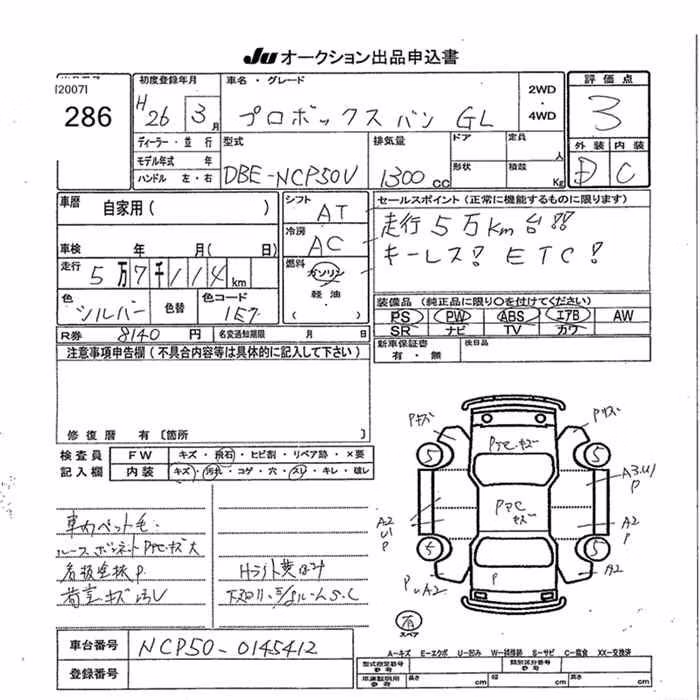 Ju オークション出品申込書
[2007]
286
初度登録年月 車名・グレード 2WD・4WD 評価点
H26 3月 プロボックスバン GL 3
ディーラー・並行 型式 排気量 ドア 定員 人 外装 内装
モデル年式 年 DBE-NCP50V 1300cc 形状 積載 Kg D C
ハンドル 左・右
車暦 自家用( ) シフト AT セールスポイント(正常に機能するものに限ります)
冷房 AC 走行5万Km台!!
車検 年 月( 日) キーレス! ETC!
走行 5万7千114km 燃料 ガソリン・軽油・
色 シルバー 色替 色コード 1E7 装備品(純正品に限り○を付けてください)
PS PW ABS エアB AW
SR ナビ TV カワ
R券 8140円 名変通知期限 月 日
新車保証書 有・無 後日品
注意事項申告欄(不具合内容等は具体的に記入して下さい)
修復暦 有〔箇所 〕
検査員記入欄 FW キズ・飛石・ヒビ割・リペア跡・×要
内装 キズ・汚れ・コゲ・穴・スリ・キレ・破レ
車内ペット毛
荷室キズ凹し
Pキズ
Pキズ
5
5
5
5
A3
P
A2
U1
P
A2
P
P A2
A2
P
有
スペア
車台番号 NCP50-0145412
登録番号
A-キズ E-エクボ U-凹み W-補修跡 S-サビ C-腐食 XX-交換済
型式指定番号 参考 類別区分番号 参考
車庫証明用 参考 長さ cm 幅 cm 高さ cm